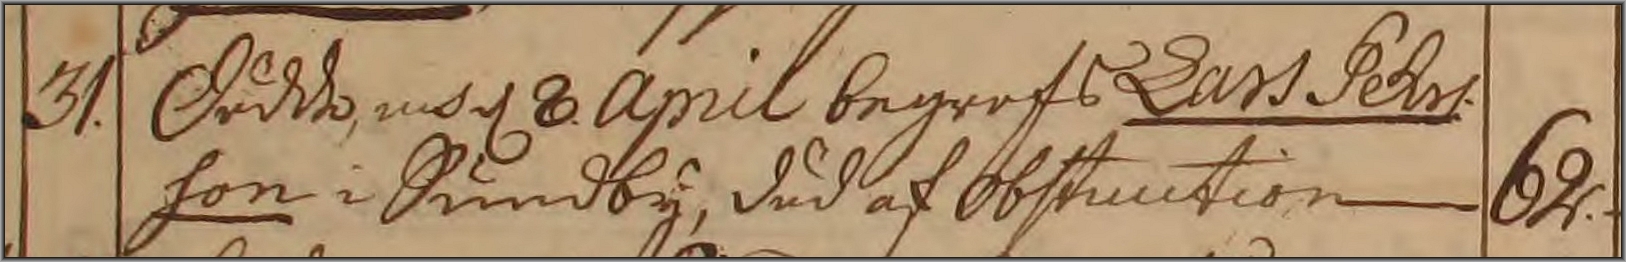 31. Dödde, och d 8. April begrofs Lars Pehrs-
son i Sundby, död af Obstruction — 62.